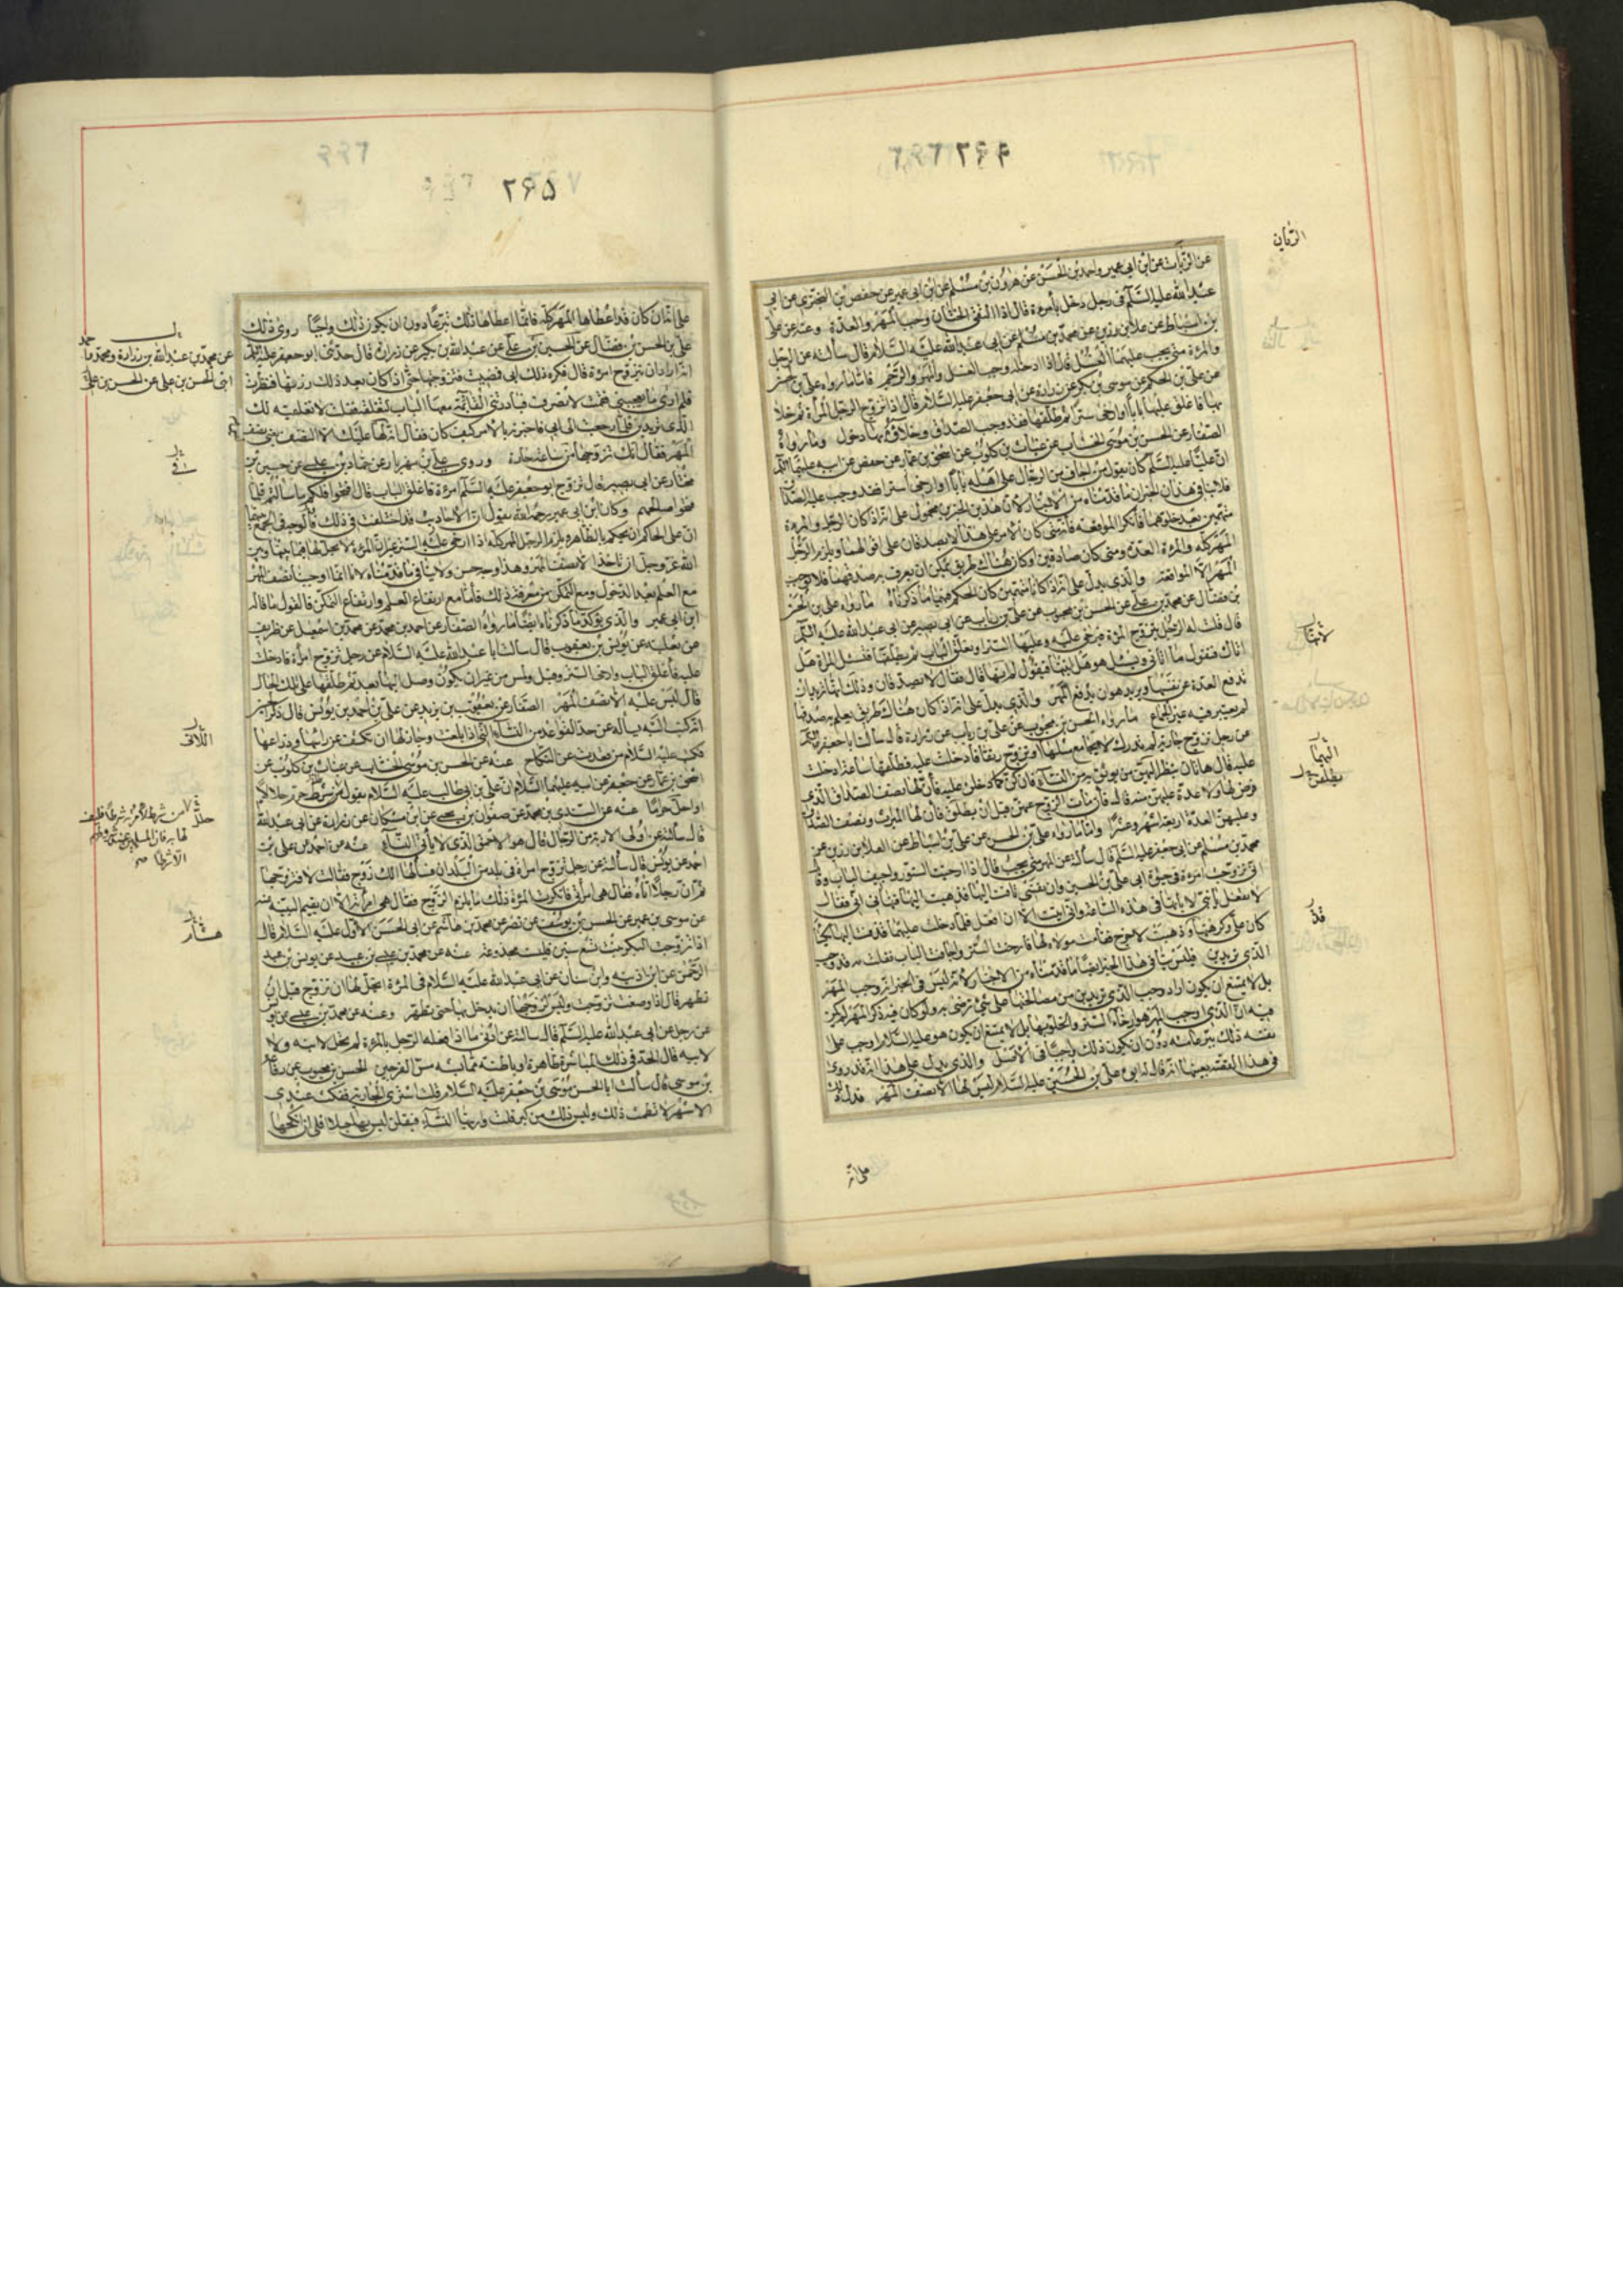 ۲۶۴
عن الزيات عن ابن ابي عمير واحمد بن الحسن عن هرون بن مسلم عن ابن ابي عمير عن حفص بن البختري عن ابي
عبد الله عليه السلم في رجل دخل بامرءة قال اذا التقى الختانان وجب المهر والعدة وعنه عن علي
بن اسباط عن علا بن رزين عن محمد بن مسلم عن ابي عبد الله عليه السلام قال سألته عن الرجل
والمرءة متى يجب عليهما الغسل قال اذا ادخله وجب الغسل والمهر والرجم فاما ما رواه علي بن الحسن
عن علي بن الحكم عن موسى بن بكر عن زرارة عن ابي جعفر عليه السلام قال اذا تزوج الرجل المرأة ثم خلا
بها فاغلق عليها بابا او ارخى سترا ثم طلقها فقد وجب الصداق وخلاؤه بها دخول وما رواه
الصفار عن الحسن بن موسى الخشاب عن غياث بن كلوب عن اسحق بن عمار عن جعفر عن ابيه عليهما السلم
ان عليا عليه السلم كان يقول من اجاف من الرجال على اهله بابا او ارخى سترا فقد وجب عليه الصداق
فلا ينافي هذان الخبران ما قدمناه من الاخبار لان هذين الخبرين محمول على انه اذا كان الرجل والمرءة
متهمين بعد خلوتهما فانكرا المواقعة فانه متى كان الامر على هذا لا يصدقان على اقوالهما ويلزم الرجل
المهر كله والمرءة العدة ومتى كان صادقين او كان هناك طريق يمكن ان يعرف به صدقهما فلا يوجب
المهر الا المواقعة والذي يدل على انه اذا كانا متهمين كان الحكم فيهما ما ذكرناه ما رواه علي بن الحسن
بن فضال عن محمد بن علي عن الحسن بن محبوب عن علي بن رئاب عن ابي بصير عن ابي عبد الله عليه السلم
قال قلت له الرجل يتزوج المرءة فيرخي عليه وعليها الستر او يغلق الباب ثم يطلقها فتسئل المرءة هل
اتاك فتقول ما اتاني ويسئل هو هل اتيتها فيقول لم اتها قال فقال لا يصدقان وذلك انها تريد ان
تدفع العدة عن نفسها ويريد هو ان يدفع المهر والذي يدل على انه اذا كان هناك طريق يعلم به صدقهما
لم يعتبر فيه غير الجماع ما رواه الحسن بن محبوب عن علي بن رياب عن زرارة قال سالت ابا جعفر عليه السلم
عن رجل تزوج جارية لم تدرك لا يجامع مثلها او تزوج رتقا فادخلت عليه فطلقها ساعة ادخلت
عليه قال هاتان ينظر اليهن من يوثق به من النساء فان كن كما دخلن عليه فان لها نصف الصداق الذي
فرض لها ولا عدة عليهن منه قال فان مات الزوج عنهن قبل ان يطلق فان لها الميراث ونصف الصداق
وعليهن العدة اربعة اشهر وعشرا واما ما رواه علي بن الحسن عن علي بن اسباط عن العلا بن رزين عن
محمد بن مسلم عن ابي جعفر عليه السلم قال سألته عن المهر متى يجب قال اذا ارخيت الستور واجيف الباب وقال
اني تزوجت امرءة في حيوة ابي علي بن الحسين وان نفسي تاقت اليها فذهبت اليها فنهاني ابي فقال
لا تفعل يا بني لا تأتها في هذه الساعة واني ابيت الا ان افعل فلما دخلت عليها قذفت اليها بكساء
كان علي وكرهتها وذهبت لاخرج فقامت مولاة لها فارخت الستر واجافت الباب فقلت مه قد وجب
الذي تريدين فليس ينافي هذا الخبر ايضا ما قدمناه من الاخبار لانه ليس في الخبر انه وجب المهر
بل لا يمتنع ان يكون اراد وجب الذي تريدين من مصالحتها على شيء ترضى به ولو كان فيه ذكر المهر لم يكن
فيه ان الذي اوجب المهر هو ارخاء الستر والخلو بها بل لا يمتنع ان يكون هو عليه السلام اوجب على
نفسه ذلك تبرعا منه دون ان يكون ذلك واجبا في الاصل والذي يدل على هذا انه قد روى
في هذا القصة بعينها انه قال له ابي علي بن الحسين عليه السلام ليس لها الا نصف المهر فدل ذلك
على انه
الزيات
لا تمتاز
اليها
يطلقن
قد
۲۶۵
على انه ان كان قد اعطاها المهر كله فانما اعطاها ذلك تبرعا دون ان يكون ذلك واجبا روى ذلك
علي بن الحسن بن فضال عن الحسين بن علي عن عبد الله بن بكير عن زرارة قال حدثني ابو جعفر عليه السلم
انه اراد ان يتزوج امرءة قال فكره ذلك ابي فمضيت فتزوجتها حتى اذا كان بعد ذلك زرتها فنظرت
فلم ار ما يعجبني فقمت لانصرف فبادرتني القائمة معها الباب لتغلقه فقلت لا تغلقيه لك
الذي تريدين فلما رجعت الى ابي فاخبرته بالامر كيف كان فقال انه لها عليك الا النصف يعني نصف
المهر فقال انك تزوجتها في ساعة حارة وروى علي بن مهزيار عن حماد بن عيسى عن حسين بن
مختار عن ابي بصير قال تزوج ابو جعفر عليه السلم امرءة فاغلق الباب قال افتحوا فلكم ما سألتم فلما
فتحوا صالحهم وكان ابن ابي عمير رحمه الله يقول ان الاحاديث قد اختلفت في ذلك فالوجه في الجمع بينها
ان على الحاكم ان يحكم بالظاهر ويلزم الرجل المهر كله اذا ارخى عليه الستر غير ان المرءة لا يحل لها فيما بينها وبين
الله عز وجل ان تاخذ الا نصف المهر وهذا وجه حسن ولا ينافي ما قدمناه لانا انما اوجبنا نصف المهر
مع العلم بعدم الدخول ومع التمكن من معرفة ذلك فاما مع ارتفاع العلم وارتفاع التمكن فالقول ما قاله
ابن ابي عمير والذي يؤكد ما ذكرناه ايضا ما رواه الصفار عن احمد بن محمد عن محمد بن اسمعيل عن ظريف
عن ثعلبة عن يونس بن يعقوب قال سالت ابا عبد الله عليه السلام عن رجل تزوج امرأة فادخلت
عليه فاغلق الباب وارخى الستر وقبل ولمس من غير ان يكون وصل اليها بعد ثم طلقها على تلك الحال
قال ليس عليه الا نصف المهر الصفار عن يعقوب بن يزيد عن علي بن احمد بن يونس قال ذكر الحسين
انه كتب اليه يسأله عن حد القواعد من النساء اللتي اذا بلغت وجاز لها ان تكشف عن رأسها وذراعها
فكتب عليه السلام من قعدن عن النكاح عنه عن الحسن بن موسى الخشاب عن غياث بن كلوب عن
اسحق بن عمار عن جعفر عن ابيه عليهما السلام ان علي بن ابي طالب عليه السلام يقول من شرط حرم حلالا
او احل حراما عنه عن السندي بن محمد عن صفوان بن يحيى عن ابن مسكان عن زرارة عن ابي عبد الله
قال سألته عن اولى الاربة من الرجال قال هو الاحمق الذي لا يأتي النساء عنه عن احمد عن علي بن
احمد عن يونس قال سألته عن رجل تزوج امراة في بلد من البلدان فسألها الك زوج فقالت لا فتزوجها
ثم ان رجلا اتاه فقال هي امرأتي فانكرت المرءة ذلك ما يلزم الزوج فقال هي امرأته الا ان يقيم البينة عنه
عن موسى بن عمير عن الحسن بن يوسف عن نصر عن محمد بن هاشم عن ابي الحسن الاول عليه السلام قال
اذا تزوجت البكر بنت تسع سنين فليست مخدوعة عنه عن محمد بن عيسى بن عبيد عن يونس بن عبد
الرحمن عن ابن اذينه وابن سنان عن ابي عبد الله عليه السلام في المرءة اتحل لها ان تزوج قبل ان
تطهر قال اذا وضعت تزوجت وليس لزوجها ان يدخل بها حتى تطهر وعنه عن محمد بن عيسى عن يونس
عن رجل عن ابي عبد الله عليه السلم قال سالته عن ادنى ما اذا فعله الرجل بالمرءة لم تحل لابنه ولا
لابيه قال الحد في ذلك المباشرة ظاهرة او باطنة مما يشبه مس الفرجين الحسن بن محبوب عن رفاعة
بن موسى قال سألت ابا الحسن موسى بن جعفر عليه السلام قلت اشتري الجارية فتمكث عندي
الاشهر لا تطمث ذلك وليس ذلك من كبر قلت واريها النساء فيقلن ليس بها حبل افلي ان انكحها
عن محمد بن عبد الله بن زرارة ومحمد واحمد
ابني الحسن بن علي عن الحسن بن علي
في
اللاتي
من شرط لامرأته شرطا فليف
لها به فان المسلمين عند شروطهم
الا شرطا
هشام